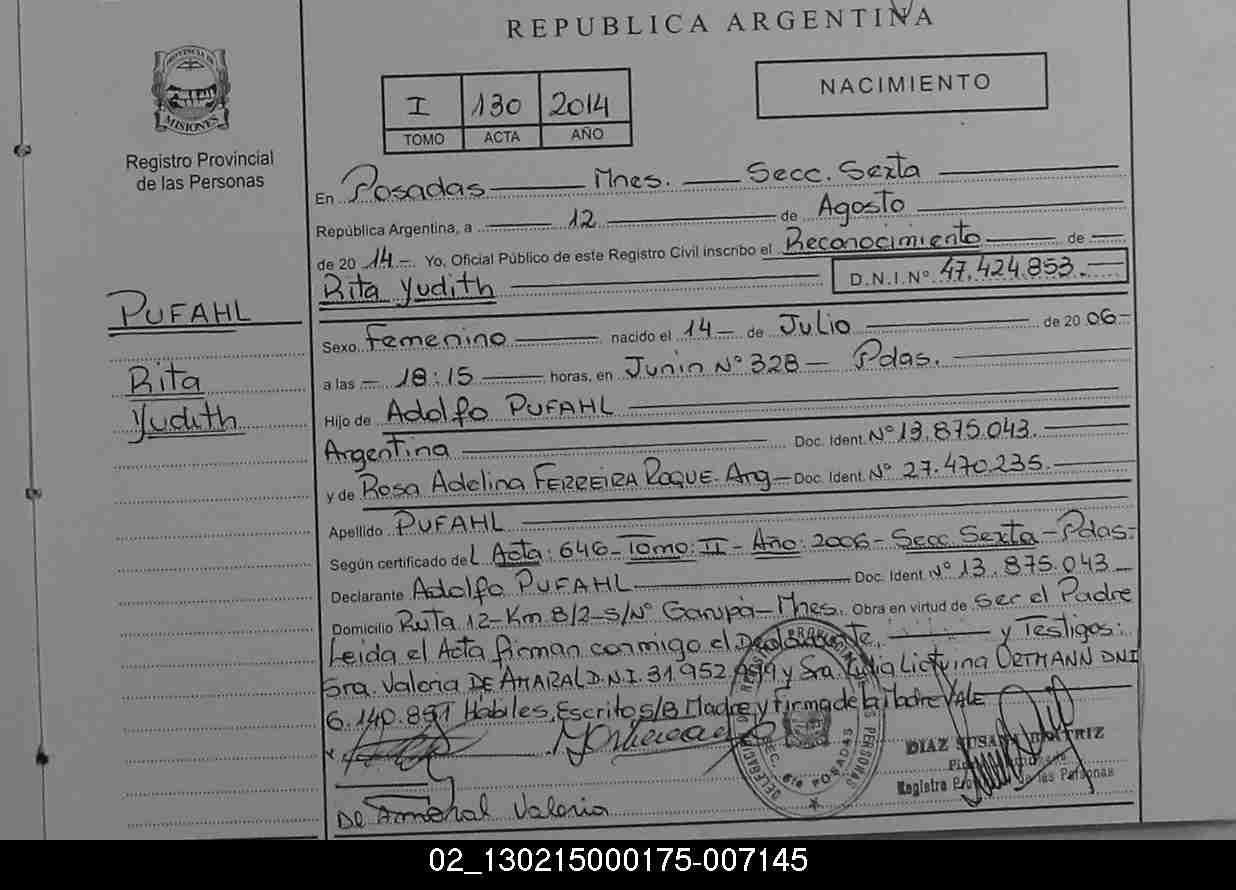 REPUBLICA ARGENTINA
PROVINCIA DE
MISIONES
Registro Provincial
de las Personas
I 130 2014
TOMO ACTA AÑO
NACIMIENTO
En Posadas Mnes. Secc. Sexta
República Argentina, a 12 de Agosto
de 20 14 Yo, Oficial Público de este Registro Civil inscribo el Reconocimiento de
Rita Yudith D.N.I.Nº 47.424.853.
PUFAHL
Rita
Yudith
Sexo Femenino nacido el 14 de Julio de 20 06
a las 18:15 horas, en Junin Nº 328 - Pdas.
Hijo de Adolfo PUFAHL
Argentina Doc. Ident. Nº 13.875.043.
y de Rosa Adelina FERREIRA ROQUE. Arg Doc. Ident. Nº 27.470.235.
Apellido PUFAHL
Según certificado del Acta: 646 - Tomo: II - Año: 2006 - Secc. Sexta - Pdas.
Declarante Adolfo PUFAHL Doc. Ident. Nº 13.875.043
Domicilio Ruta 12 - Km 8/2 - S/Nº Garupá - Mnes. Obra en virtud de ser el Padre
Leida el Acta firman conmigo el Declarante, y Testigos:
Sra. Valeria DE AMARAL D.N.I. 31.952. y Sra. ORTMANN DNI
6.140.891 Hábiles, Escrito s/B Madre y firma de la Madre VALE
SEC. 6ta POSADAS
DIAZ SUSANA BEATRIZ
Registro de las Personas
De Amaral Valeria
02_130215000175-007145